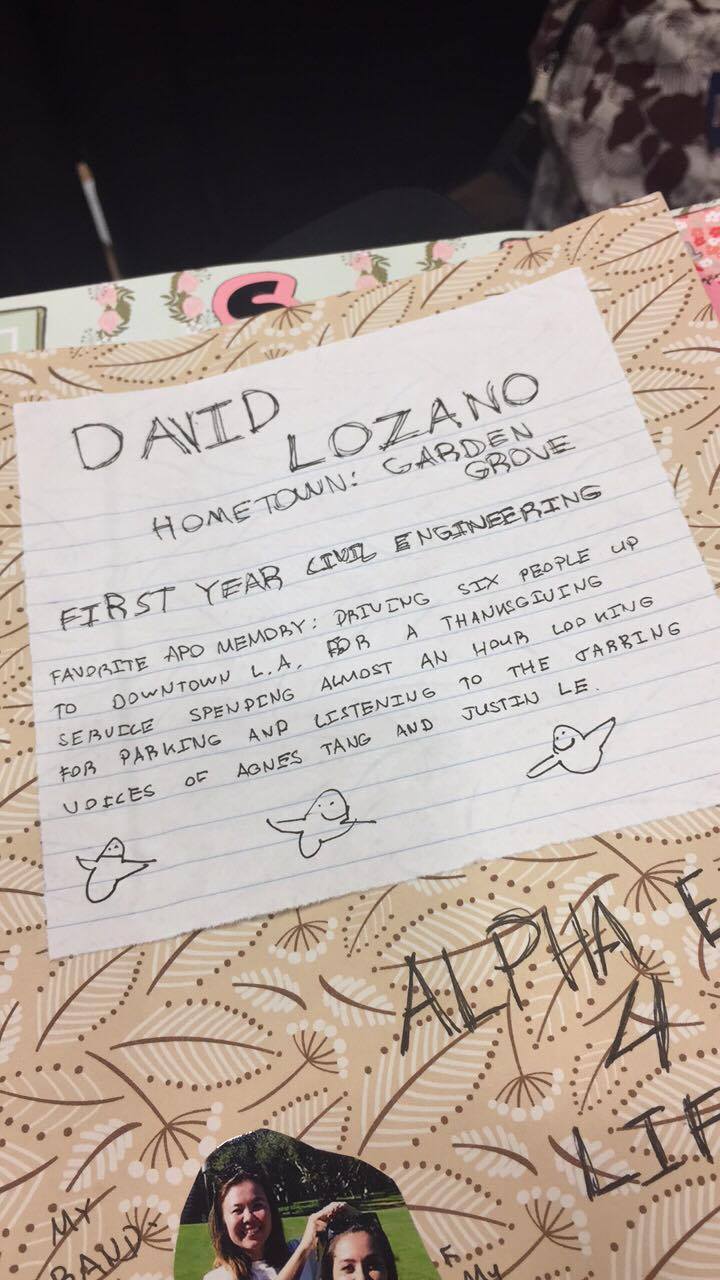 S
DAVID
LOZANO
HOMETOWN: GARDEN
GROVE
FIRST YEAR CIVIL ENGINEERING
FAVORITE APO MEMORY: DRIVING SIX PEOPLE UP
TO DOWNTOWN L.A. FOR A THANKSGIVING
SERVICE SPENDING ALMOST AN HOUR LOOKING
FOR PARKING AND LISTENING TO THE JARRING
VOICES OF AGNES TANG AND JUSTIN LE.
ALPHA E
4
LIF
MY
BAND
MY